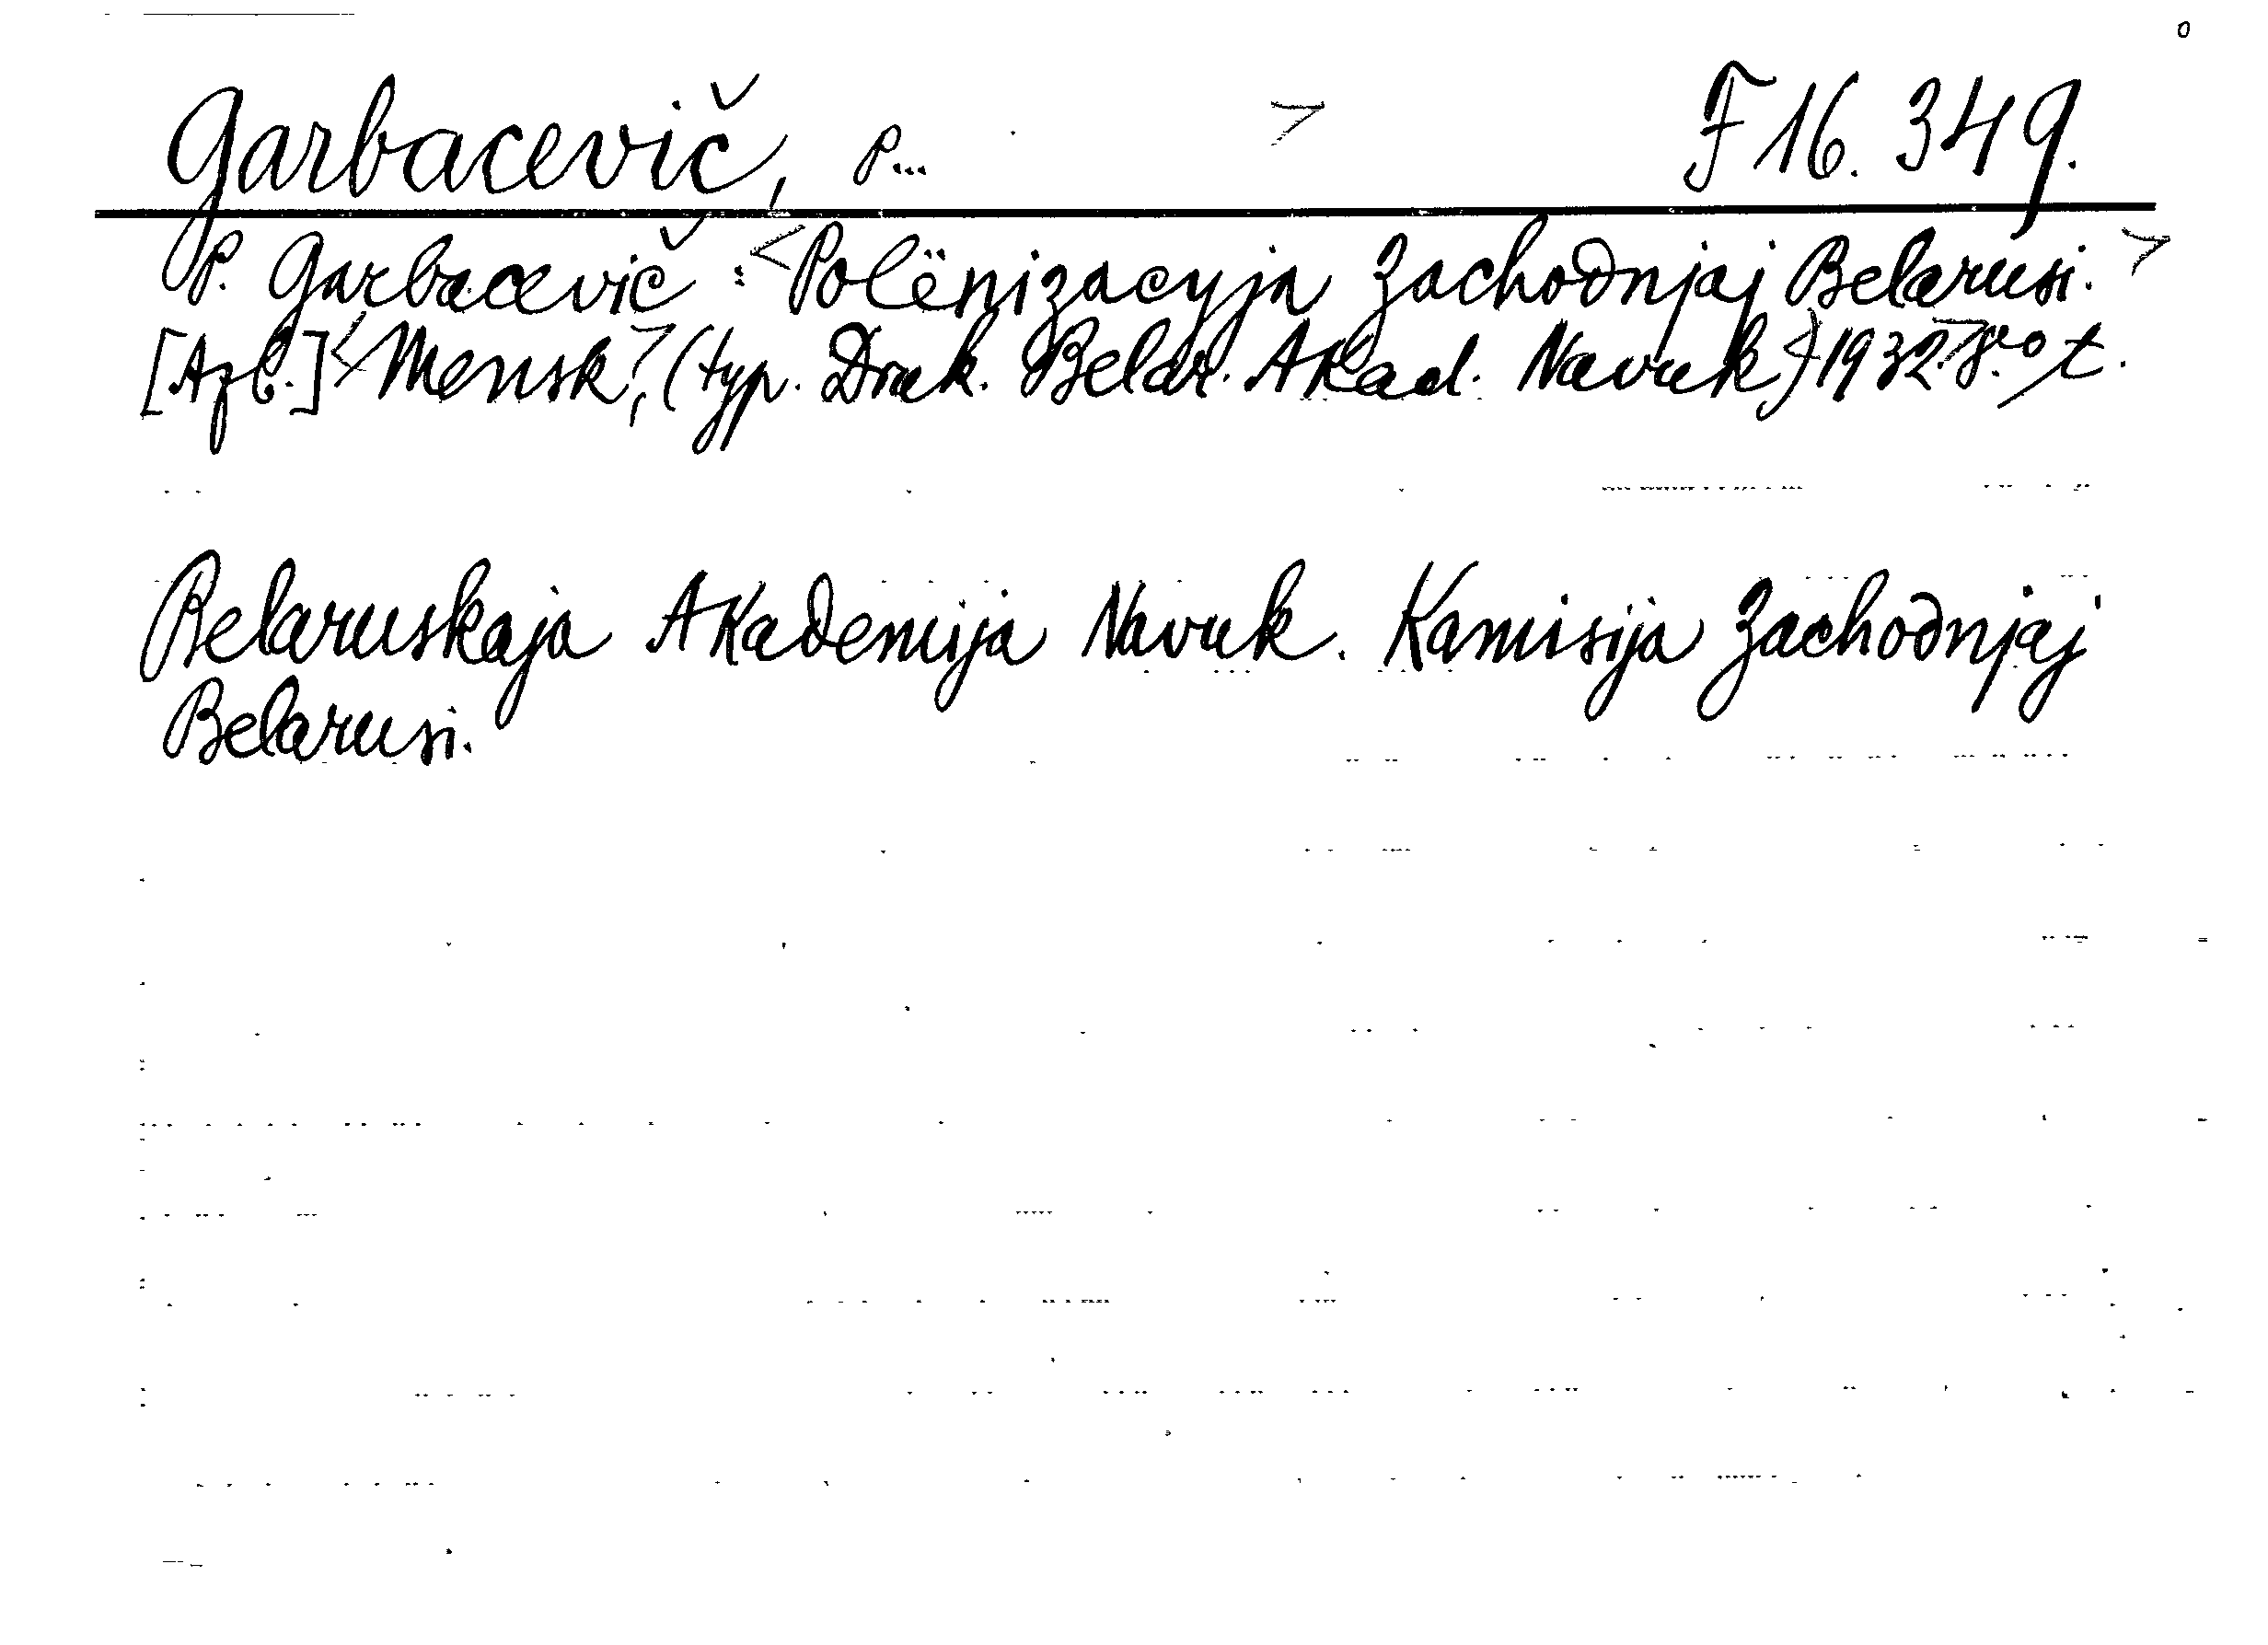 Garbacevič, P... > F 16. 349.
P. Garbacevič : <Polënizacyja Zachodnjaj Belarusi.>
[Azb.] <Mensk>, (typ. Druk. Belar. Akad. Navuk) <1932> 8.º t.
Belaruskaja Akademija Navuk. Kamisija Zachodnjaj
Belarusi.